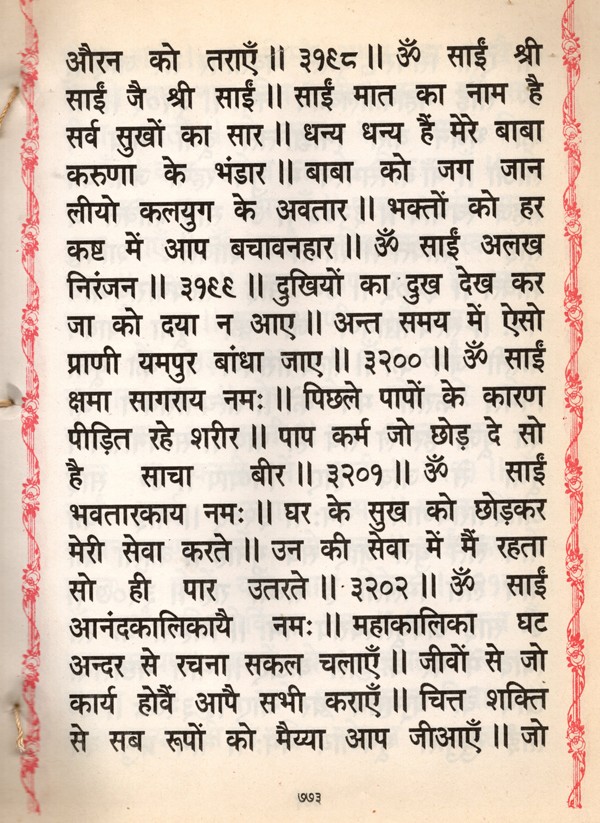 औरन को तराएँ ॥ ३१९८ ॥ ॐ साईं श्री
साईं जै श्री साईं ॥ साईं मात का नाम है
सर्व सुखों का सार ॥ धन्य धन्य हैं मेरे बाबा
करुणा के भंडार ॥ बाबा को जग जान
लीयो कलयुग के अवतार ॥ भक्तों को हर
कष्ट में आप बचावनहार ॥ ॐ साईं अलख
निरंजन ॥ ३१९९ ॥ दुखियों का दुख देख कर
जा को दया न आए ॥ अन्त समय में ऐसो
प्राणी यमपुर बांधा जाए ॥ ३२०० ॥ ॐ साईं
क्षमा सागराय नमः ॥ पिछले पापों के कारण
पीड़ित रहे शरीर ॥ पाप कर्म जो छोड़ दे सो
है साचा बीर ॥ ३२०१ ॥ ॐ साईं
भवतारकाय नमः ॥ घर के सुख को छोड़कर
मेरी सेवा करते ॥ उन की सेवा में मैं रहता
सो ही पार उतरते ॥ ३२०२ ॥ ॐ साईं
आनंदकालिकायै नमः ॥ महाकालिका घट
अन्दर से रचना सकल चलाएँ ॥ जीवों से जो
कार्य होवैं आपै सभी कराएँ ॥ चित्त शक्ति
से सब रूपों को मैय्या आप जीआएँ ॥ जो
७७३